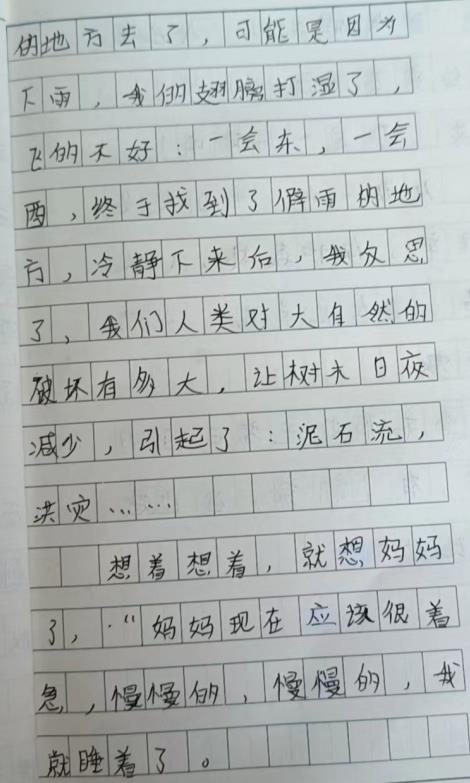 的地方去了，可能是因为
下雨，我的翅膀打湿了，
飞的不好：一会东，一会
西，终于找到了僻雨的地
方，冷静下来后，我反思
了，我们人类对大自然的
破坏有多大，让树木日夜
减少，引起了：泥石流，
洪灾……
想着想着，就想妈妈
了，“妈妈现在应该很着
急，慢慢的，慢慢的，我
就睡着了。